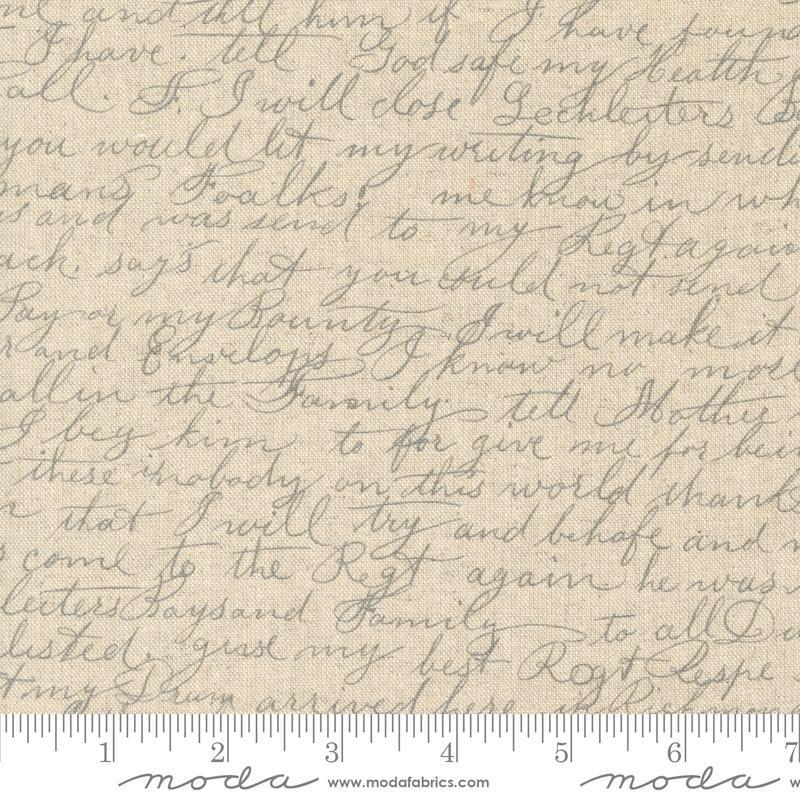 and tell him if I have found
I have. tell God safe my Health
all. F. I will close Lechleiters
you would let my writing by sendi
mans Foalks. me know in wh
s and was send to my Regt again
ack. says that you could not send
Pay or my Bounty I will make it
r and Envelops I know no more
all in the Family. tell Mother
I beg him to for give me for bein
these is nobody on this world thank
that I will try and behafe and n
s come to the Regt again he was
leiters Says and Family to all D
listed. give my best Regt Respe
t my Drum arrived here in Richmon
1 2 3 4 5 6 7
moda www.modafabrics.com moda w